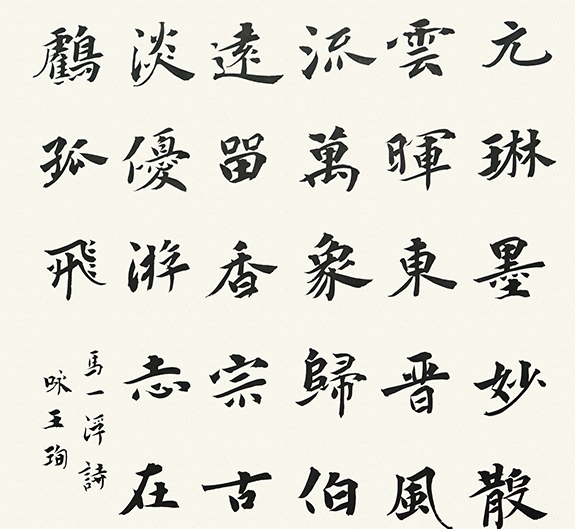 元琳墨妙散
雲暉東晋風
流萬象歸伯
遠留香宗古
淡優游志在
鶴孤飛
馬一浮詩
咏王珣